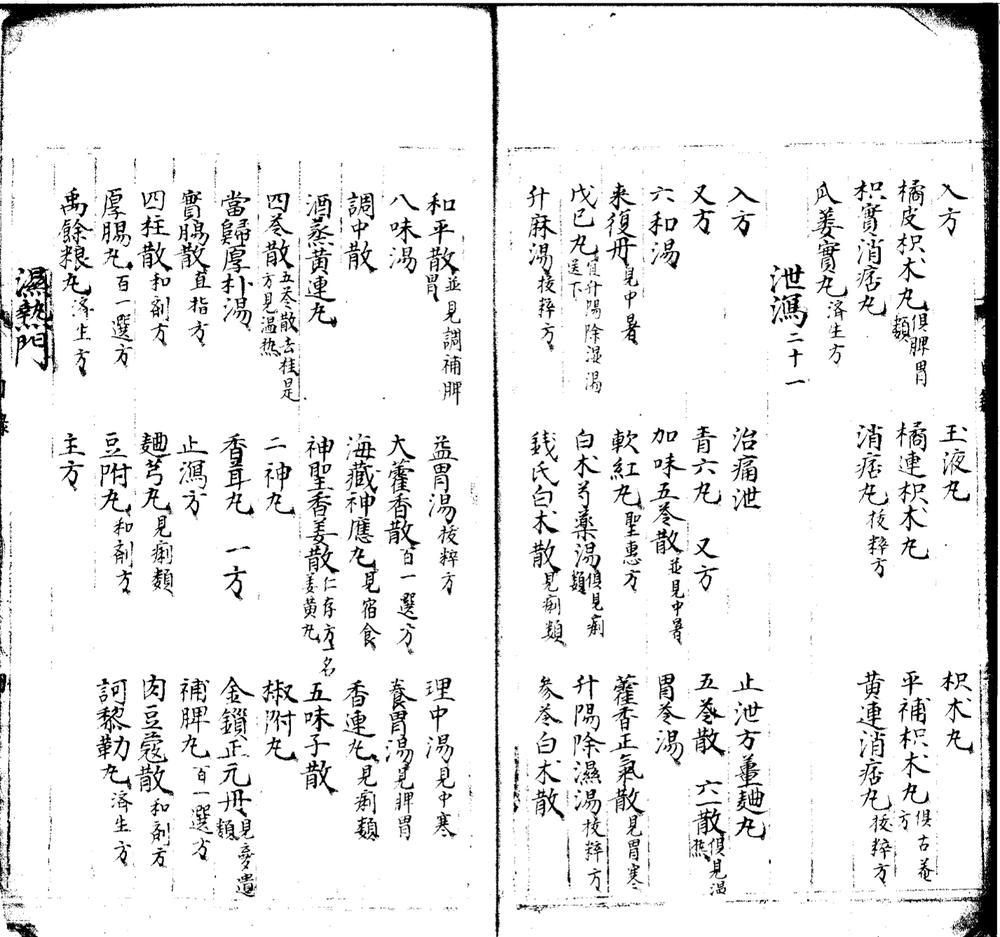 入方 玉液丸 枳朮丸
橘皮枳朮丸俱脾胃類 橘連枳朮丸 平補枳朮丸俱古菴方
枳實消痞丸 消痞丸拔粹方 黄連消痞丸拔粹方
瓜蔞實丸済生方
泄瀉二十一
入方 治痛泄 止泄方薑麯丸
又方 青六丸 又方 五苓散 六一散俱見温热
六和湯 加味五苓散並見中暑 胃苓湯
来復丹見中暑 軟紅丸聖惠方 藿香正氣散見胃寒
戊己丸宜升陽除湿湯送下 白朮芍藥湯俱見痢類 升陽除濕湯拔粹方
升麻湯拔粹方 錢氏白朮散見痢類 參苓白朮散
和平散並見調補脾胃 益胃湯拔粹方 理中湯見中寒
八味湯 大藿香散百一選方 養胃湯見脾胃
調中散 海藏神應丸見宿食 香連丸見痢類
酒蒸黄連丸 神聖香姜散仁存方一名姜黄丸 五味子散
四苓散五苓散去桂是方見温热 二神丸 椒附丸
當歸厚朴湯 香茸丸 一方 金鎖正元丹見夢遺類
實腸散直指方 止瀉方 補脾丸百一選方
四柱散和劑方 麯芎丸見痢類 肉豆蔻散和劑方
厚腸丸百一選方 豆附丸和劑方 訶黎勒丸済生方
禹餘粮丸済生方 主方
濕熱門